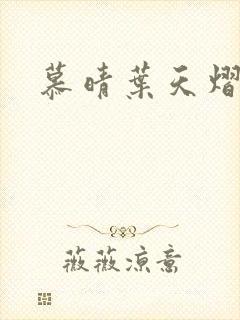 慕晴葉天熠
薇薇涼意